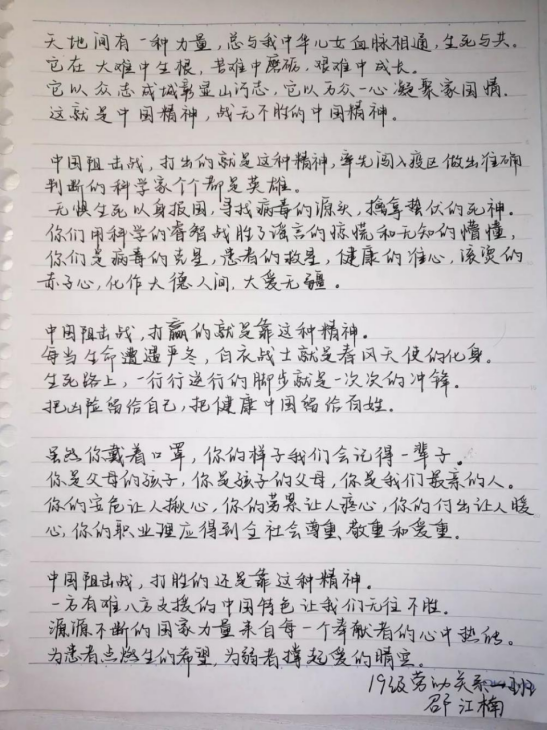 天地间有一种力量，总与我中华儿女血脉相通，生死与共。
它在大难中生根，苦难中磨砺，艰难中成长。
它以众志成城彰显山河志，它以万众一心凝聚家国情。
这就是中国精神，战无不胜的中国精神。
中国阻击战，打出的就是这种精神，率先闯入疫区做出准确
判断的科学家个个都是英雄。
无惧生死以身报国，寻找病毒的源头，擒拿蛰伏的死神。
你们用科学的睿智战胜了谣言的惊慌和无知的懵懂，
你们是病毒的克星，患者的救星，健康的准心，滚烫的
赤子心，化作大德人间，大爱无疆。
中国阻击战，打赢的就是靠这种精神。
每当生命遭遇严冬，白衣战士就是春风天使的化身。
生死路上，一行行逆行的脚步就是一次次的冲锋。
把凶险留给自己，把健康中国留给百姓。
虽然你戴着口罩，你的样子我们会记得一辈子。
你是父母的孩子，你是孩子的父母，你是我们最亲的人。
你的安危让人揪心，你的劳累让人疼心，你的付出让人暖
心，你的职业理应得到全社会尊重、敬重和爱重。
中国阻击战，打胜的还是靠这种精神。
一方有难八方支援的中国特色让我们无往不胜。
源源不断的国家力量来自每一个奉献者的心中热能。
为患者点燃生的希望，为弱者撑起爱的晴空。
19级劳动关系一班
邵江楠